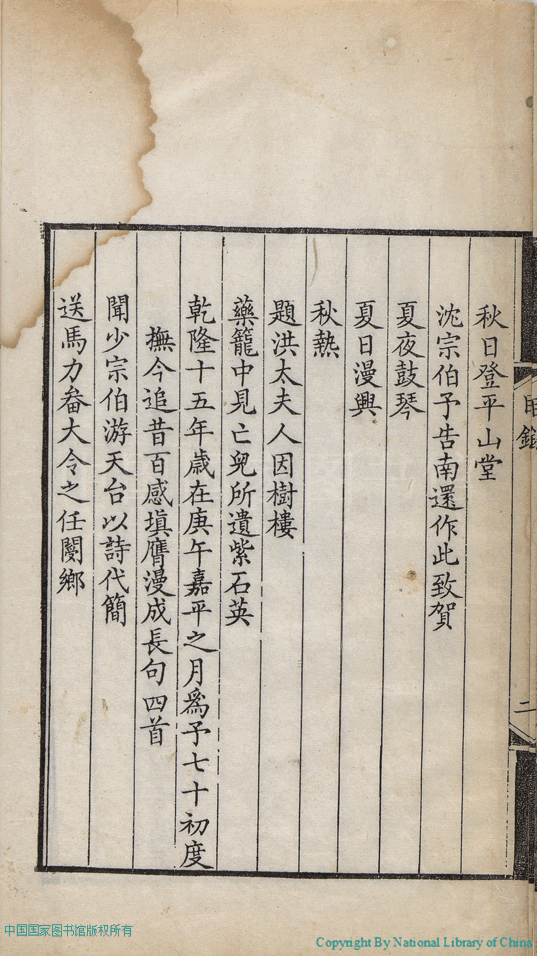 秋日登平山堂
沈宗伯予告南還作此致賀
夏夜鼓琴
夏日漫興
秋熱
題洪太夫人因樹樓
藥籠中見亡兒所遺紫石英
乾隆十五年歲在庚午嘉平之月爲予七十初度
撫今追昔百感塡膺漫成長句四首
聞少宗伯游天台以詩代簡
送馬力畚大令之任閿鄉
目錄
二
中国国家图书馆版权所有
Copyright By National Library of China